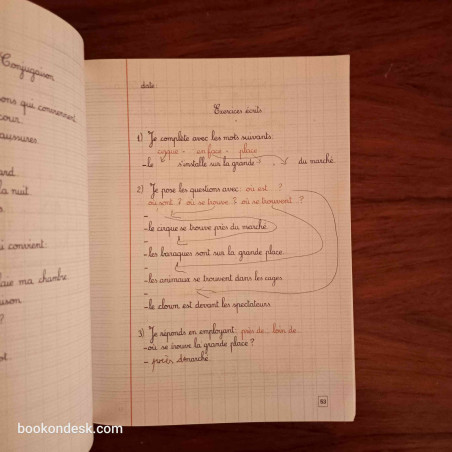 Conjugaison
ons qui conviennent
cour.
aussures.
ard.
la nuit.
s.
ui convient:
laue ma chambre
uson.
?
ot.
date:
Exercices écrits
1) Je complète avec les mots suivants:
cirque - en face - place
-le s'installe sur la grande du marché.
2) Je pose les questions avec: où est ?
où sont ? où se trouve ? où se trouvent ?
-
-le cirque se trouve près du marché.
-
-les baraques sont sur la grande place.
-
-les animaux se trouvent dans les cages.
-
-le clown est devant les spectateurs.
3) Je réponds en employant: près de - loin de
-où se trouve la grande place ?
- près marché
93
bookondesk.com